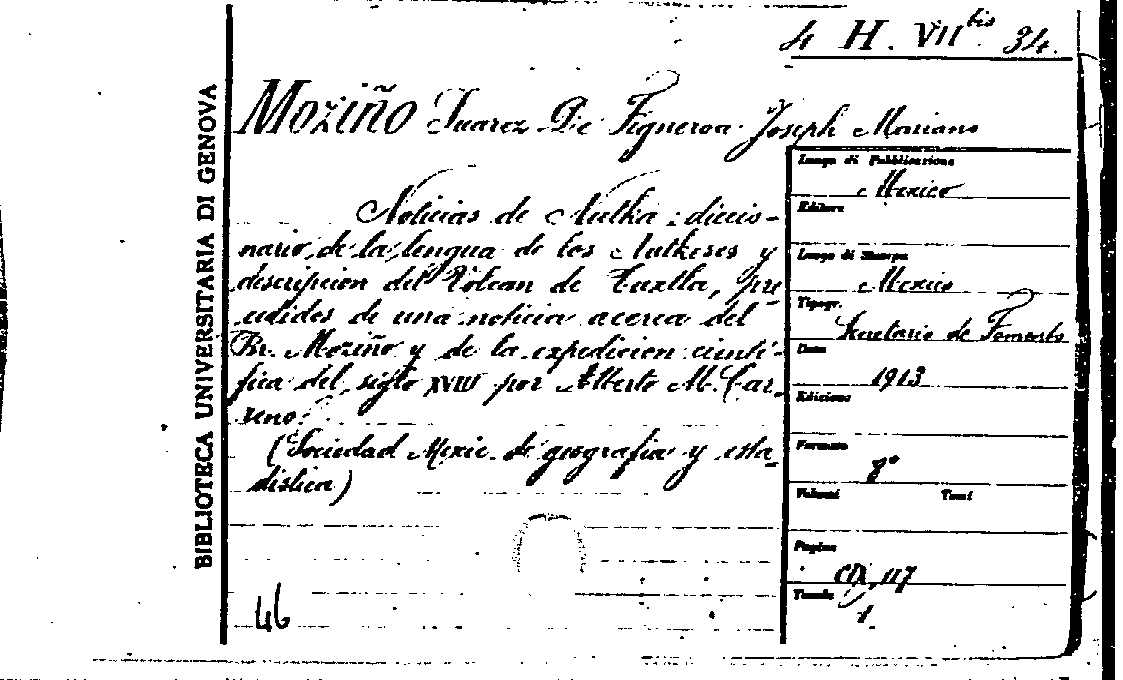 4 H. VII bis 34.
BIBLIOTECA UNIVERSITARIA DI GENOVA
Moziño Suarez De Figueroa Joseph Mariano
Noticias de Nutka: diccio-
nario de la lengua de los Nutkeses y
descripcion del Volcan de Tuxtla, pre
cedidos de una noticia acerca del
Br. Moziño y de la expedicion cientí-
fica del siglo XVIII por Alberto M. Car-
reno.
(Sociedad Mexic. de geografia y esta-
distica)
46
Luogo di Pubblicazione
Mexico
Editore
Luogo di Stampa
Mexico
Tipogr.
Secretario de Fomento
Data
1913
Edizione
Formato
8°
Volumi Tomi
Pagine
CIX, 117
Tavole
1.